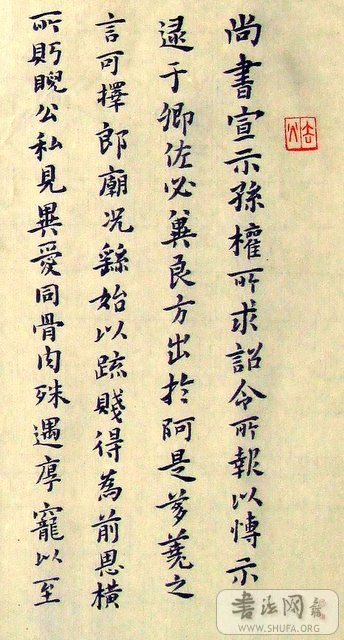 尚書宣示孫權所求詔令所報以愽示
逮于卿佐必冀良方出於阿是芻蕘之
言可擇郎廟况繇始以疏賤得為前恩橫
所眄睨公私見異愛同骨肉殊遇厚寵以至
書法网
WWW.SHUFA.ORG